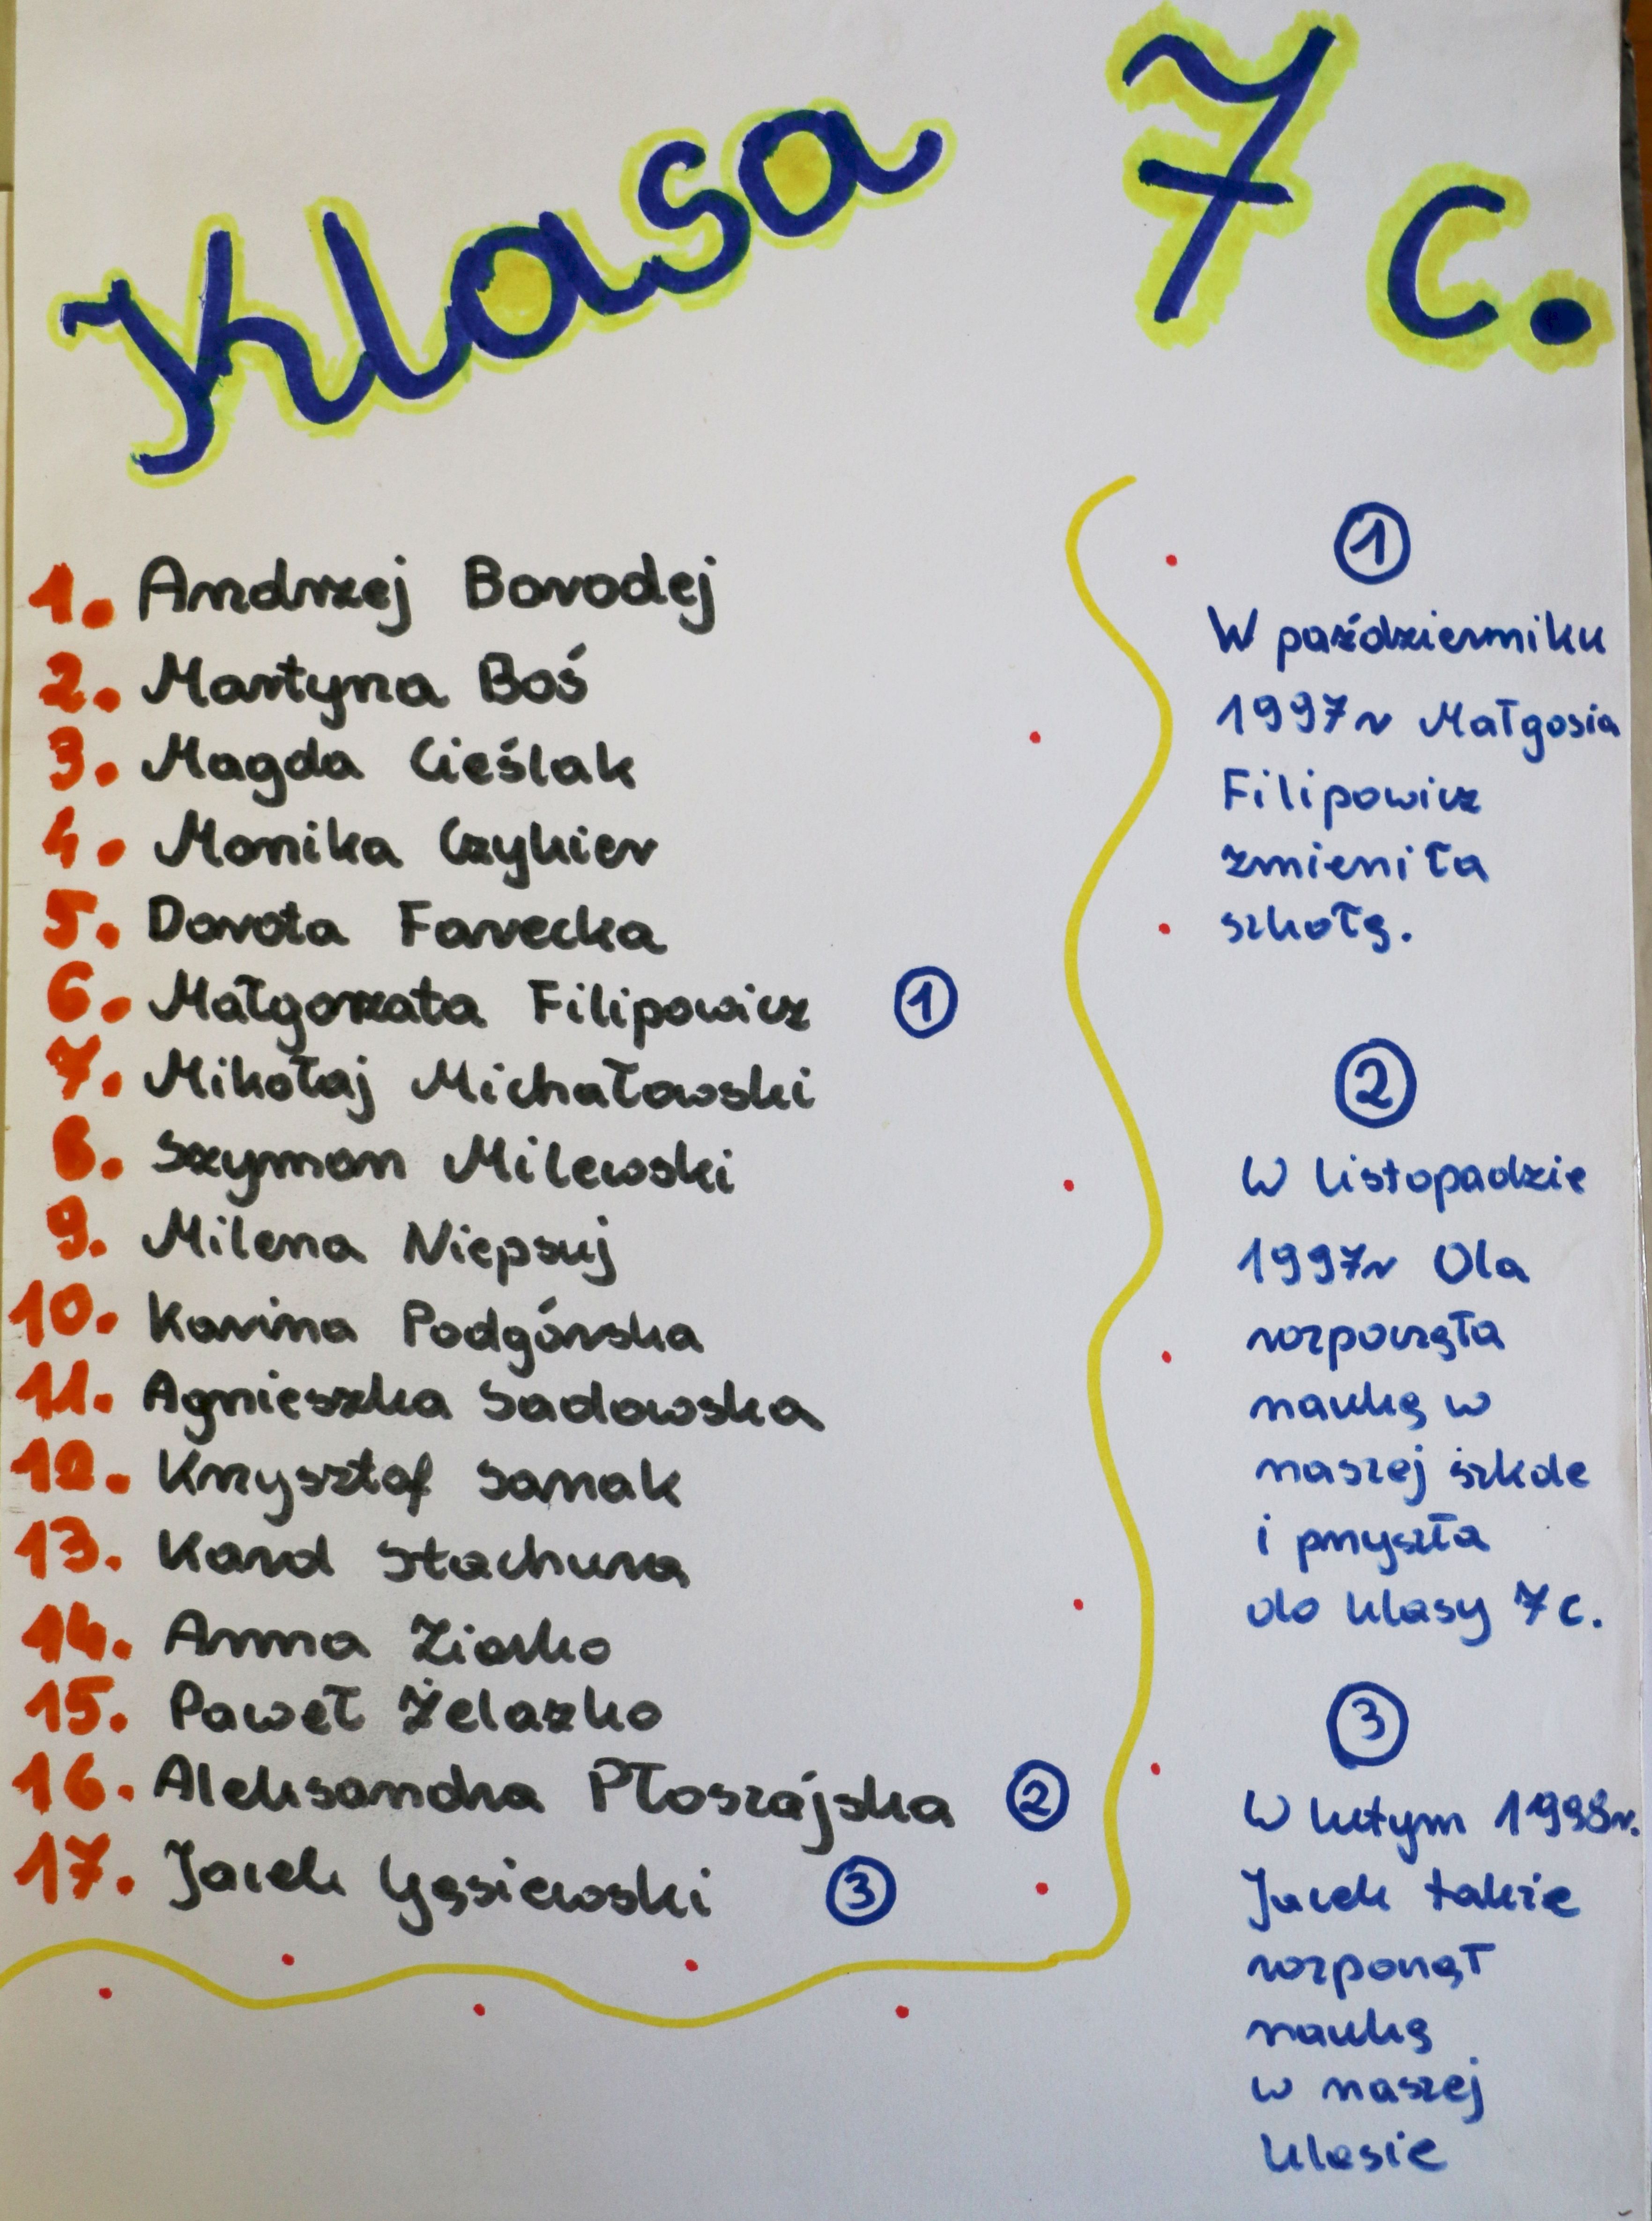 Klasa 7 c.
1. Andrzej Borodej
2. Martyna Boś
3. Magda Cieślak
4. Monika Czykier
5. Dorota Farecka
6. Małgorzata Filipowicz ①
7. Mikołaj Michałowski
8. Szymon Milewski
9. Milena Niepsuj
10. Karina Podgórska
11. Agnieszka Sadowska
12. Krzysztof Sanak
13. Karol Stachura
14. Anna Ziarko
15. Paweł Żelazko
16. Aleksandra Płoszajska ②
17. Jacek Gąsiewski ③
①
W październiku
1997r Małgosia
Filipowicz
zmieniła
szkołę.
②
W listopadzie
1997r Ola
rozpoczęła
naukę w
naszej szkole
i przyszła
do klasy 7c.
③
W lutym 1998r.
Jacek także
rozpoczął
naukę
w naszej
klasie